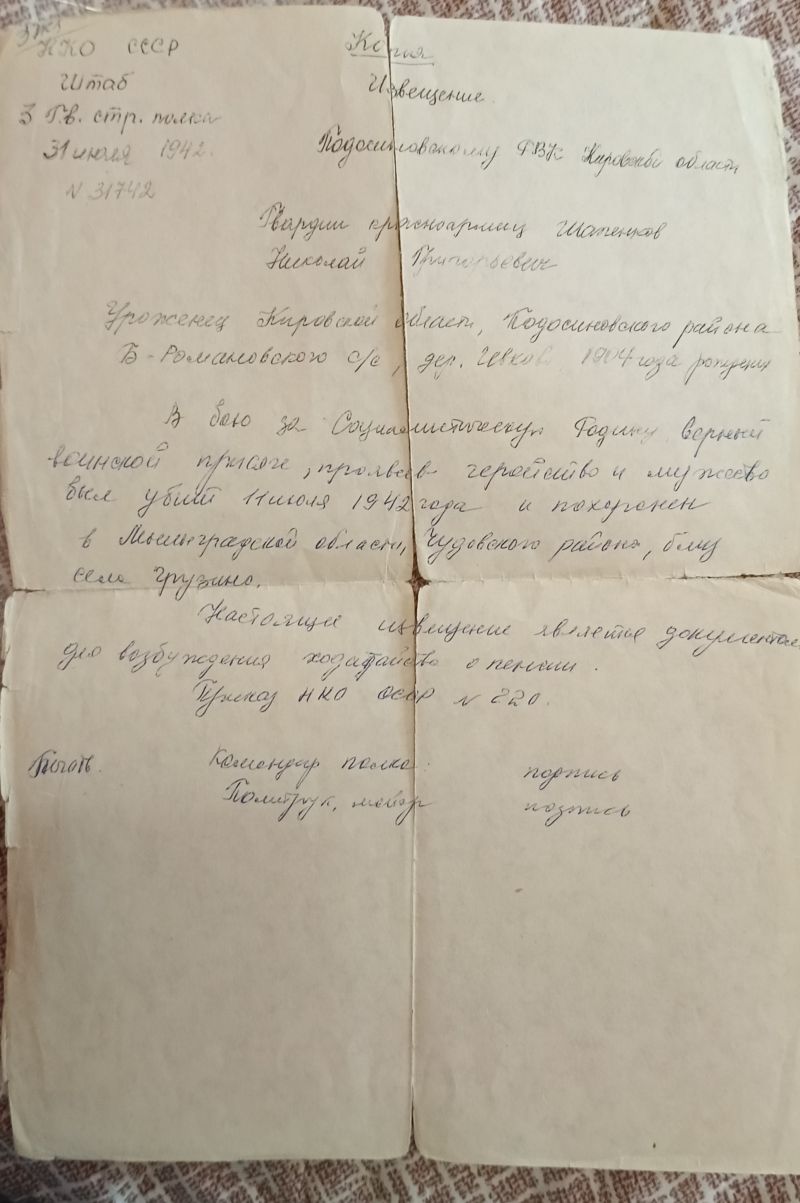 НКО СССР
Копия
Штаб
Извещение.
3 Гв. стр. полка
31 июля 1942.
Подосиновскому РВК Кировской области
N 31742
Гвардии красноармиец Шапенков
Николай Григорьевич
Уроженец Кировской области, Подосиновского района
Б-Романовского с/с, дер. 1904 года рождения
В бою за Социалистическую Родину верный
воинской присяге, проявив геройство и мужество
был убит 11 июля 1942 года и похоронен
в Ленинградской области, Чудовского района, близ
села Грузино.
Настоящее извещение является документом
для возбуждения ходатайства о пенсии.
Приказ НКО СССР N 220.
Печать.
Командир полка:
подпись
Политрук,
подпись